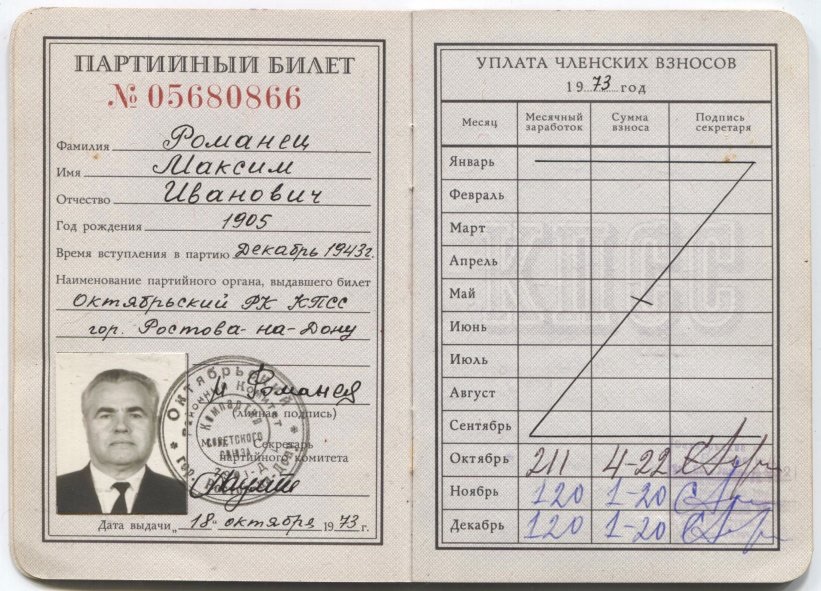 ПАРТИЙНЫЙ БИЛЕТ
№ 05680866
Фамилия Романец
Имя Максим
Отчество Иванович
Год рождения 1905
Время вступления в партию Декабрь 1943г.
Наименование партийного органа, выдавшего билет
Октябрьский РК КПСС
гор. Ростова-на-Дону
Романец
(личная подпись)
Октябрьский
районный комитет
Компартии
Советского
Союза
Секретарь
партийного комитета
Дата выдачи „18" октября 1973 г.
УПЛАТА ЧЛЕНСКИХ ВЗНОСОВ
1973 год
Месяц Месячный заработок Сумма взноса Подпись секретаря
Январь
Февраль
Март
Апрель
КПСС
Май
Июнь
Июль
Август
Сентябрь
Октябрь 211 4-22
Ноябрь 120 1-20
Декабрь 120 1-20